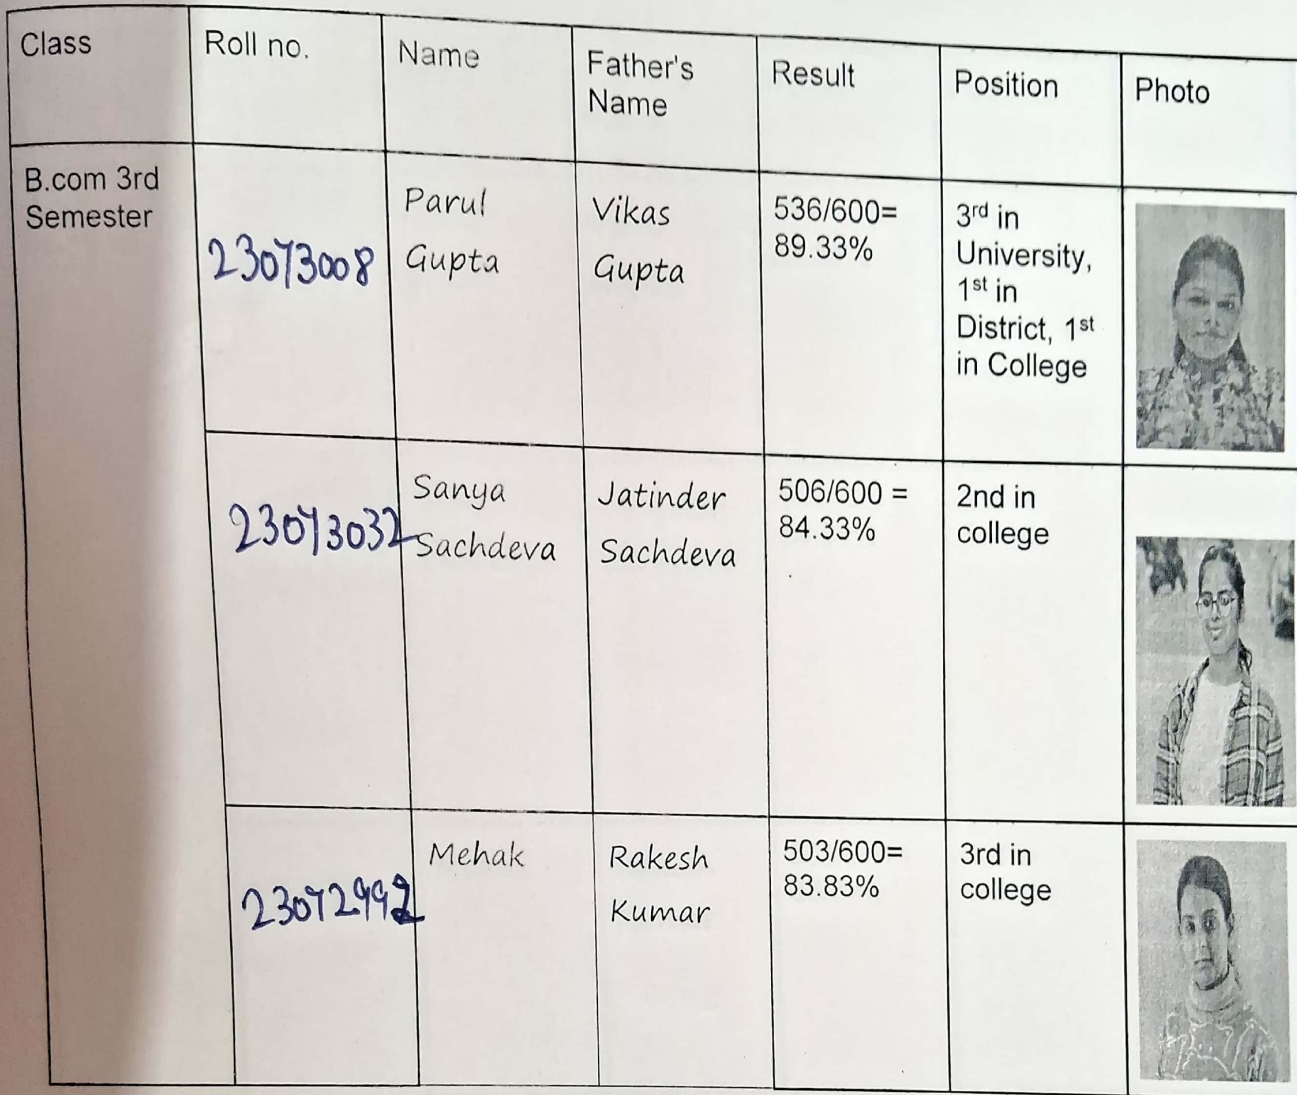 Class Roll no. Name Father's Name Result Position Photo
B.com 3rd Semester
23073008
Parul
Gupta
Vikas
Gupta
536/600=
89.33%
3rd in
University,
1st in
District, 1st
in College
23073032
Sanya
Sachdeva
Jatinder
Sachdeva
506/600 =
84.33%
2nd in
college
23072992
Mehak
Rakesh
Kumar
503/600=
83.83%
3rd in
college